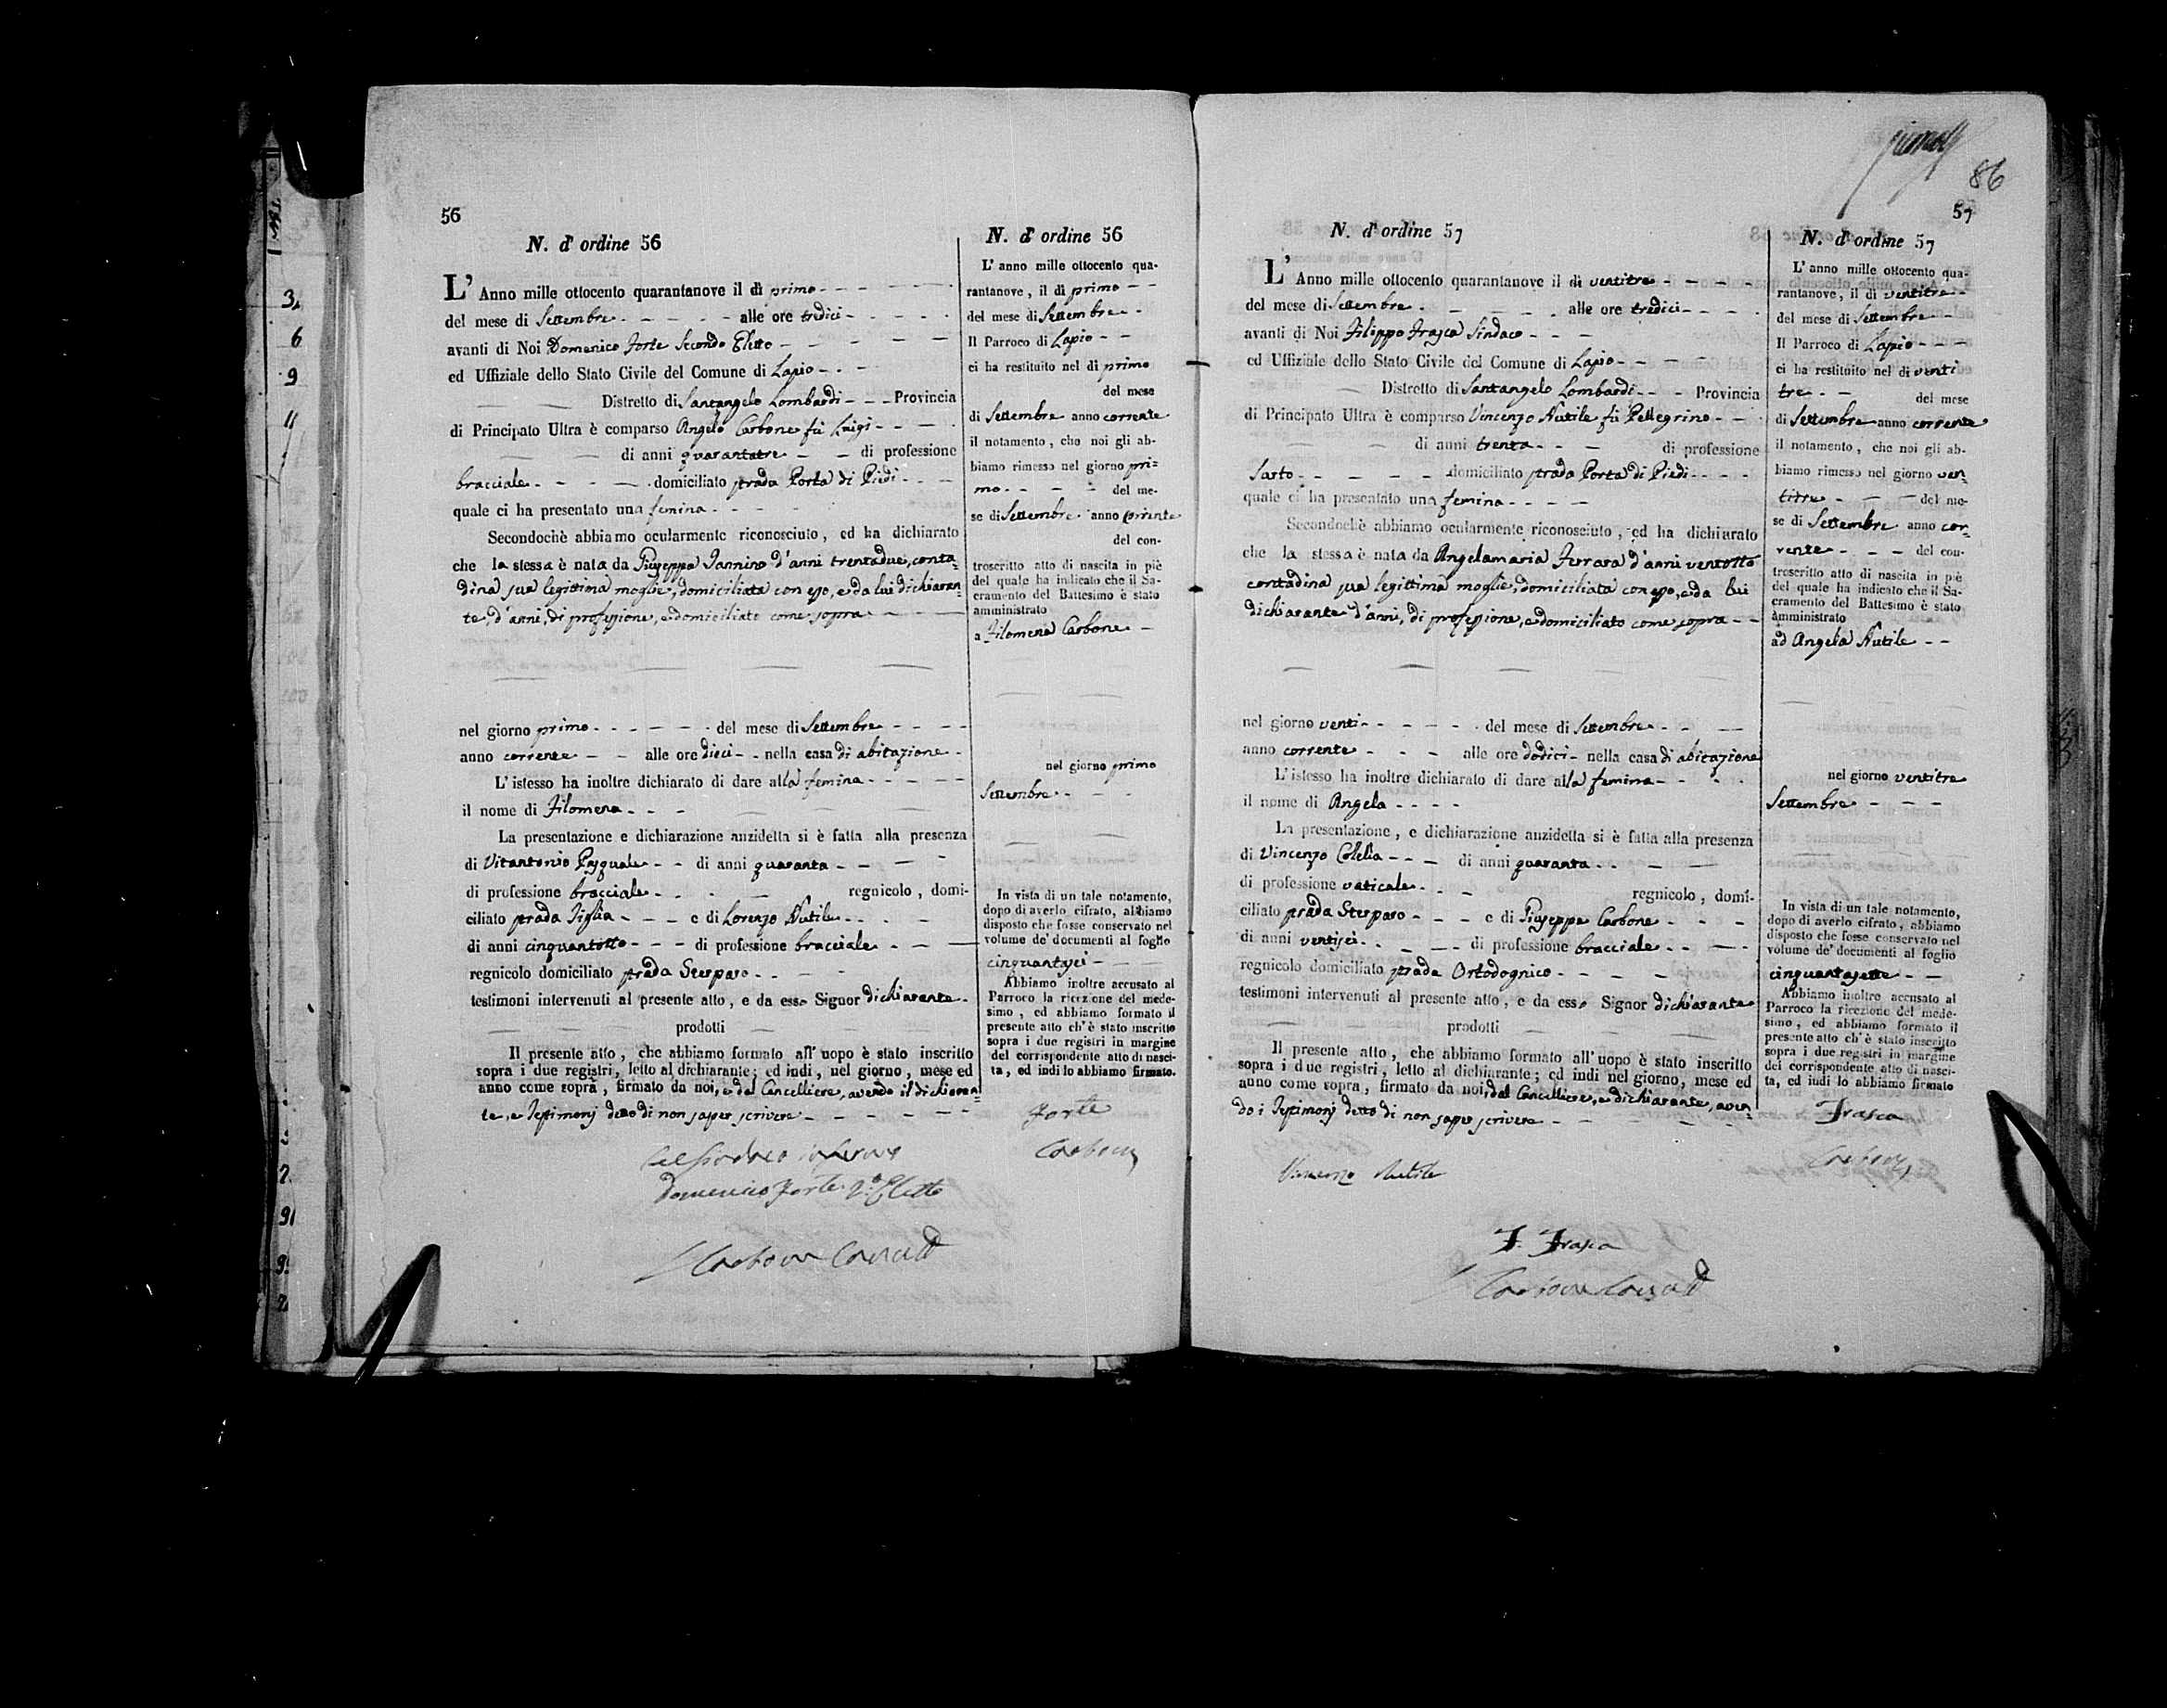 56
N. d' ordine 56
L' Anno mille ottocento quarantanove il dì primo
del mese di Settembre alle ore tredici
avanti di Noi Domenico Forte Secondo Eletto
ed Uffiziale dello Stato Civile del Comune di Lapio
Distretto di Santangelo Lombardi Provincia
di Principato Ultra è comparso Angelo Carbone fù Luigi
di anni quarantatre di professione
bracciale domiciliato strada Porta di Piedi
quale ci ha presentato una femina
Secondochè abbiamo ocularmente riconosciuto, ed ha dichiarato
che la stessa è nata da Giuseppa Iannino d'anni trentadue, conta=
dina sua legittima moglie, domiciliata con esso, e da lui dichiaran=
te, d'anni, di professione, e domiciliato come sopra
nel giorno primo del mese di Settembre
anno corrente alle ore dieci nella casa di abitazione
L' istesso ha inoltre dichiarato di dare alla femina
il nome di Filomena
La presentazione e dichiarazione anzidetta si è fatta alla presenza
di Vitantonio Pasquale di anni quaranta
di professione bracciale regnicolo, domi-
ciliato strada Figlia e di Lorenzo Nutile
di anni cinquantotto di professione bracciale
regnicolo domiciliato strada Sterparo
testimoni intervenuti al presente atto, e da esso Signor dichiarante
prodotti
Il presente atto, che abbiamo formato all' uopo è stato inscritto
sopra i due registri, letto al dichiarante; ed indi, nel giorno, mese ed
anno come sopra, firmato da noi, e dal Cancelliere, avendo il dichiaran=
te, e testimonj detto di non saper scrivere
Domenico Forte 2.º Eletto
Carbone Cancell
N. d' ordine 56
L' anno mille ottocento qua-
rantanove, il dì primo
del mese di Settembre
Il Parroco di Lapio
ci ha restituito nel dì primo
del mese
di Settembre anno corrente
il notamento, che noi gli ab-
biamo rimesso nel giorno pri=
mo del me-
se di Settembre anno corrente
del con-
troscritto atto di nascita in piè
del quale ha indicato che il Sa-
cramento del Battesimo è stato
amministrato
a Filomena Carbone
nel giorno primo
Settembre
In vista di un tale notamento,
dopo di averlo cifrato, abbiamo
disposto che fosse conservato nel
volume de' documenti al foglio
cinquantasei
Abbiamo inoltre accusato al
Parroco la ricezione del mede-
simo, ed abbiamo formato il
presente atto ch' è stato inscritto
sopra i due registri in margine
del corrispondente atto di nasci-
ta, ed indi lo abbiamo firmato.
Forte
Carbone
86
57
N. d' ordine 57
L' Anno mille ottocento quarantanove il dì ventitre
del mese di Settembre alle ore tredici
avanti di Noi Filippo Frasca Sindaco
ed Uffiziale dello Stato Civile del Comune di Lapio
Distretto di Santangelo Lombardi Provincia
di Principato Ultra è comparso Vincenzo Nutile fù Pellegrino
di anni trenta di professione
Sarto domiciliato strada Porta di Piedi
quale ci ha presentato una femina
Secondochè abbiamo ocularmente riconosciuto, ed ha dichiarato
che la stessa è nata da Angelamaria Ferrara d'anni ventotto
contadina sua legittima moglie, domiciliata con esso, e da lui
dichiarante d'anni, di professione, e domiciliato come sopra
nel giorno venti del mese di Settembre
anno corrente alle ore dodici nella casa di abitazione
L' istesso ha inoltre dichiarato di dare alla femina
il nome di Angela
La presentazione, e dichiarazione anzidetta si è fatta alla presenza
di Vincenzo Colella di anni quaranta
di professione vaticale regnicolo, domi-
ciliato strada Sterparo e di Giuseppe Carbone
di anni ventisei di professione bracciale
regnicolo domiciliato strada Ortodognico
testimoni intervenuti al presente atto, e da esso Signor dichiarante
prodotti
Il presente atto, che abbiamo formato all' uopo è stato inscritto
sopra i due registri, letto al dichiarante; ed indi nel giorno, mese ed
anno come sopra, firmato da noi, dal Cancelliere, e dichiarante, aven=
do i testimonj detto di non saper scrivere
Vincenzo Nutile
F. Frasca
Carbone Cancell
N. d' ordine 57
L' anno mille ottocento qua-
rantanove, il dì ventitre
del mese di Settembre
Il Parroco di Lapio
ci ha restituito nel dì venti
tre del mese
di Settembre anno corrente
il notamento, che noi gli ab-
biamo rimesso nel giorno ven=
titre del me-
se di Settembre anno cor=
rente del con-
troscritto atto di nascita in piè
del quale ha indicato che il Sa-
cramento del Battesimo è stato
amministrato
ad Angela Nutile
nel giorno ventitre
Settembre
In vista di un tale notamento,
dopo di averlo cifrato, abbiamo
disposto che fosse conservato nel
volume de' documenti al foglio
cinquantasette
Abbiamo inoltre accusato al
Parroco la ricezione del mede-
simo, ed abbiamo formato il
presente atto ch' è stato inscritto
sopra i due registri in margine
del corrispondente atto di nasci-
ta, ed indi lo abbiamo firmato
Frasca
Carbone